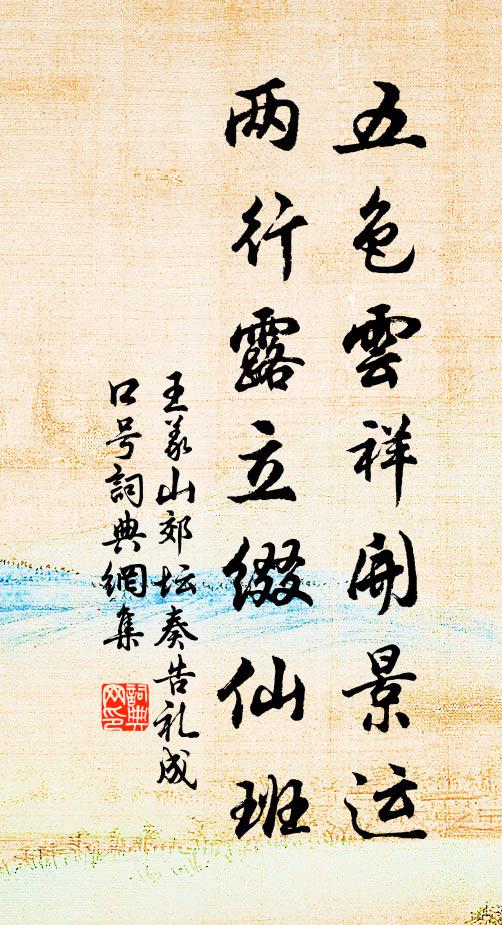 五色雲祥開景运
两行露立缀仙班
王义山郊坛奏告礼成
口号詞典網集
詞典网印